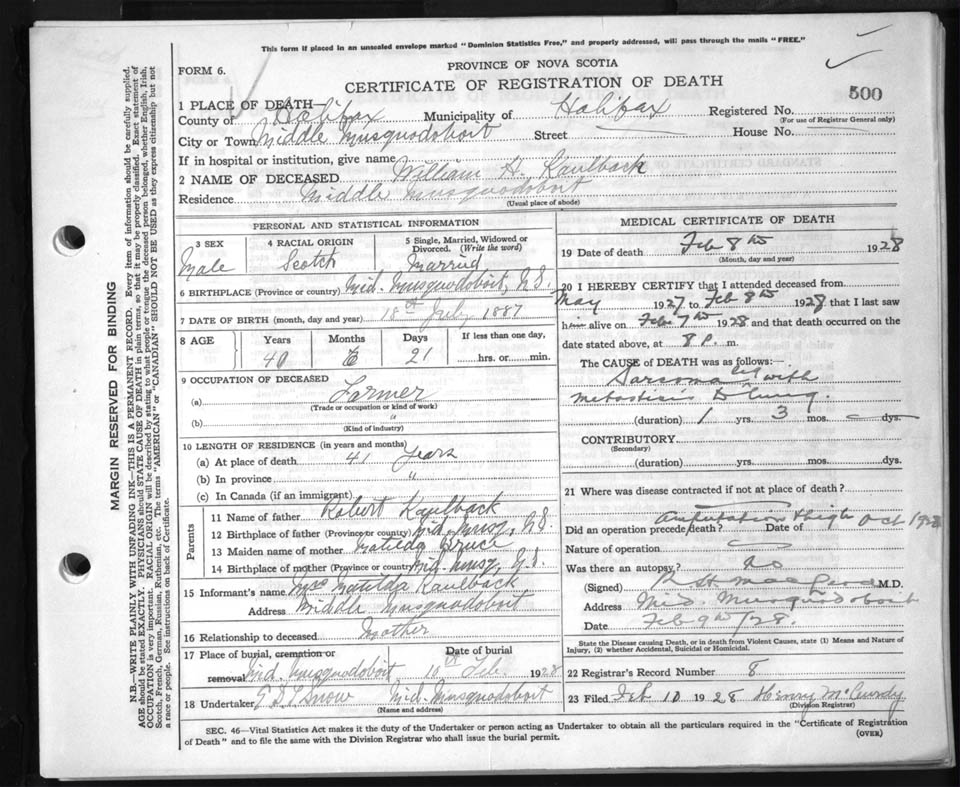 This form if placed in an unsealed envelope marked "Dominion Statistics Free," and properly addressed, will pass through the mails "FREE."
FORM 6.
PROVINCE OF NOVA SCOTIA
CERTIFICATE OF REGISTRATION OF DEATH
500
1 PLACE OF DEATH—
County of Halifax Municipality of Halifax Registered No.
(For use of Registrar General only)
City or Town Middle Musquodoboit Street House No.
If in hospital or institution, give name
2 NAME OF DECEASED William H. Kaulback
Residence Middle Musquodoboit
(Usual place of abode)
PERSONAL AND STATISTICAL INFORMATION
3 SEX 4 RACIAL ORIGIN 5 Single, Married, Widowed or Divorced. (Write the word)
Male Scotch Married
6 BIRTHPLACE (Province or country) Mid. Musquodoboit, N.S.
7 DATE OF BIRTH (month, day and year) 18th July 1887
8 AGE Years Months Days If less than one day,
40 6 21 hrs. or min.
9 OCCUPATION OF DECEASED
(a) Farmer
(Trade or occupation or kind of work)
(b) "
(Kind of industry)
10 LENGTH OF RESIDENCE (in years and months)
(a) At place of death 41 years
(b) In province "
(c) In Canada (if an immigrant)
Parents
11 Name of father Robert Kaulback
12 Birthplace of father (Province or country) Mid. Musq, N.S.
13 Maiden name of mother Matilda Bruce
14 Birthplace of mother (Province or country) Mid. Musq, N.S.
15 Informant's name Mrs Matilda Kaulback
Address Middle Musquodoboit
16 Relationship to deceased Mother
17 Place of burial, cremation or removal Date of burial
Mid. Musquodoboit 10th Feb. 1928
18 Undertaker Snow Mid. Musquodoboit
(Name and address)
MEDICAL CERTIFICATE OF DEATH
19 Date of death Feb 8th 1928
(Month, day and year)
20 I HEREBY CERTIFY that I attended deceased from
May 1927 to Feb 8th 1928 that I last saw
him alive on Feb 7th 1928 and that death occurred on the
date stated above, at 8 P. m.
The CAUSE of DEATH was as follows:—
Sarcoma leg with
metastisis to lung.
(duration) 1 yrs. 3 mos. dys.
CONTRIBUTORY
(Secondary)
(duration) yrs. mos. dys.
21 Where was disease contracted if not at place of death?
Did an operation precede death? Amputation thigh Date of Oct 1926
Nature of operation
Was there an autopsy? No
(Signed) M.D.
Address Mid. Musquodoboit
Date Feb 9th /28.
State the Disease causing Death, or in death from Violent Causes, state (1) Means and Nature of
Injury, (2) whether Accidental, Suicidal or Homicidal.
22 Registrar's Record Number 8
23 Filed Feb 10 1928 Henry McCurdy
(Division Registrar)
SEC. 46—Vital Statistics Act makes it the duty of the Undertaker or person acting as Undertaker to obtain all the particulars required in the "Certificate of Registration
of Death" and to file the same with the Division Registrar who shall issue the burial permit.
(OVER)
MARGIN RESERVED FOR BINDING
N.B.—WRITE PLAINLY WITH UNFADING INK—THIS IS A PERMANENT RECORD. Every item of information should be carefully supplied.
AGE should be stated EXACTLY. PHYSICIANS should STATE CAUSE OF DEATH in plain terms, so that it may be properly classified. Exact statement of
OCCUPATION is very important. RACIAL ORIGIN will be described by stating to what people or tongue the deceased person belonged, whether English, Irish,
Scotch, French, German, Russian, Ruthenian, etc. The terms "AMERICAN" or "CANADIAN" SHOULD NOT BE USED as they express citizenship but not
a race or people. See instructions on back of Certificate.